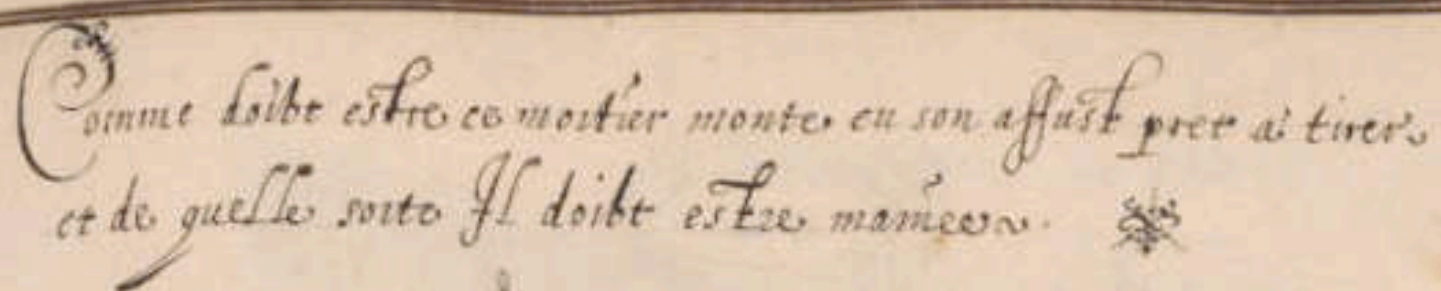 Comme doibt estre ce mortier monte en son affust pret a tirer
et de quelle sorte Il doibt estre maniee.